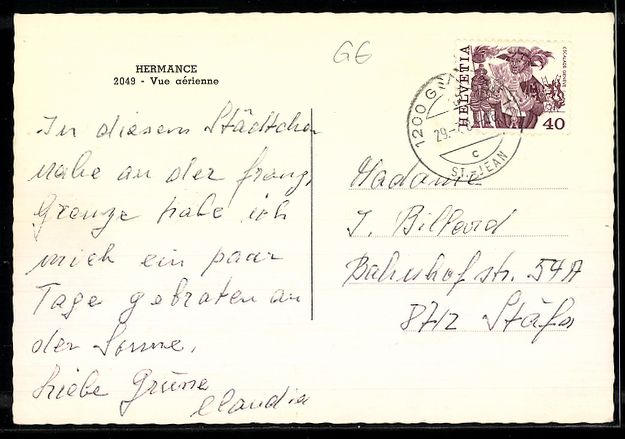 HERMANCE
2049 - Vue aérienne
G6
HELVETIA
40
1200 G
29.-
C
ST.-JEAN
In diesem Städtchen
nahe an der franz.
Grenze habe ich
mich ein paar
Tage gebraten an
der Sonne.
Liebe Grüsse
Claudia
Madame
J. Billeord
Bahnhofstr. 54A
8712 Stäfa